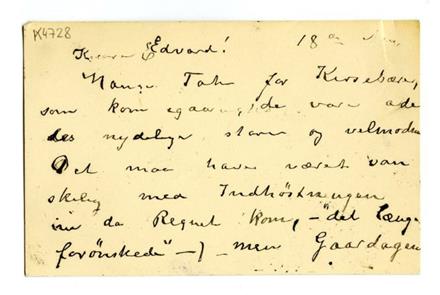 K4728
Kære Edvard! 18de
Mange Tak for Kirsebær,
som kom igaar, de vare
des nydelige store og velmodne
Det maa have været van
skelig med Indhöstningen
nu da Regnet kom, - "det længe
forönskede" -) - men Gaardagen